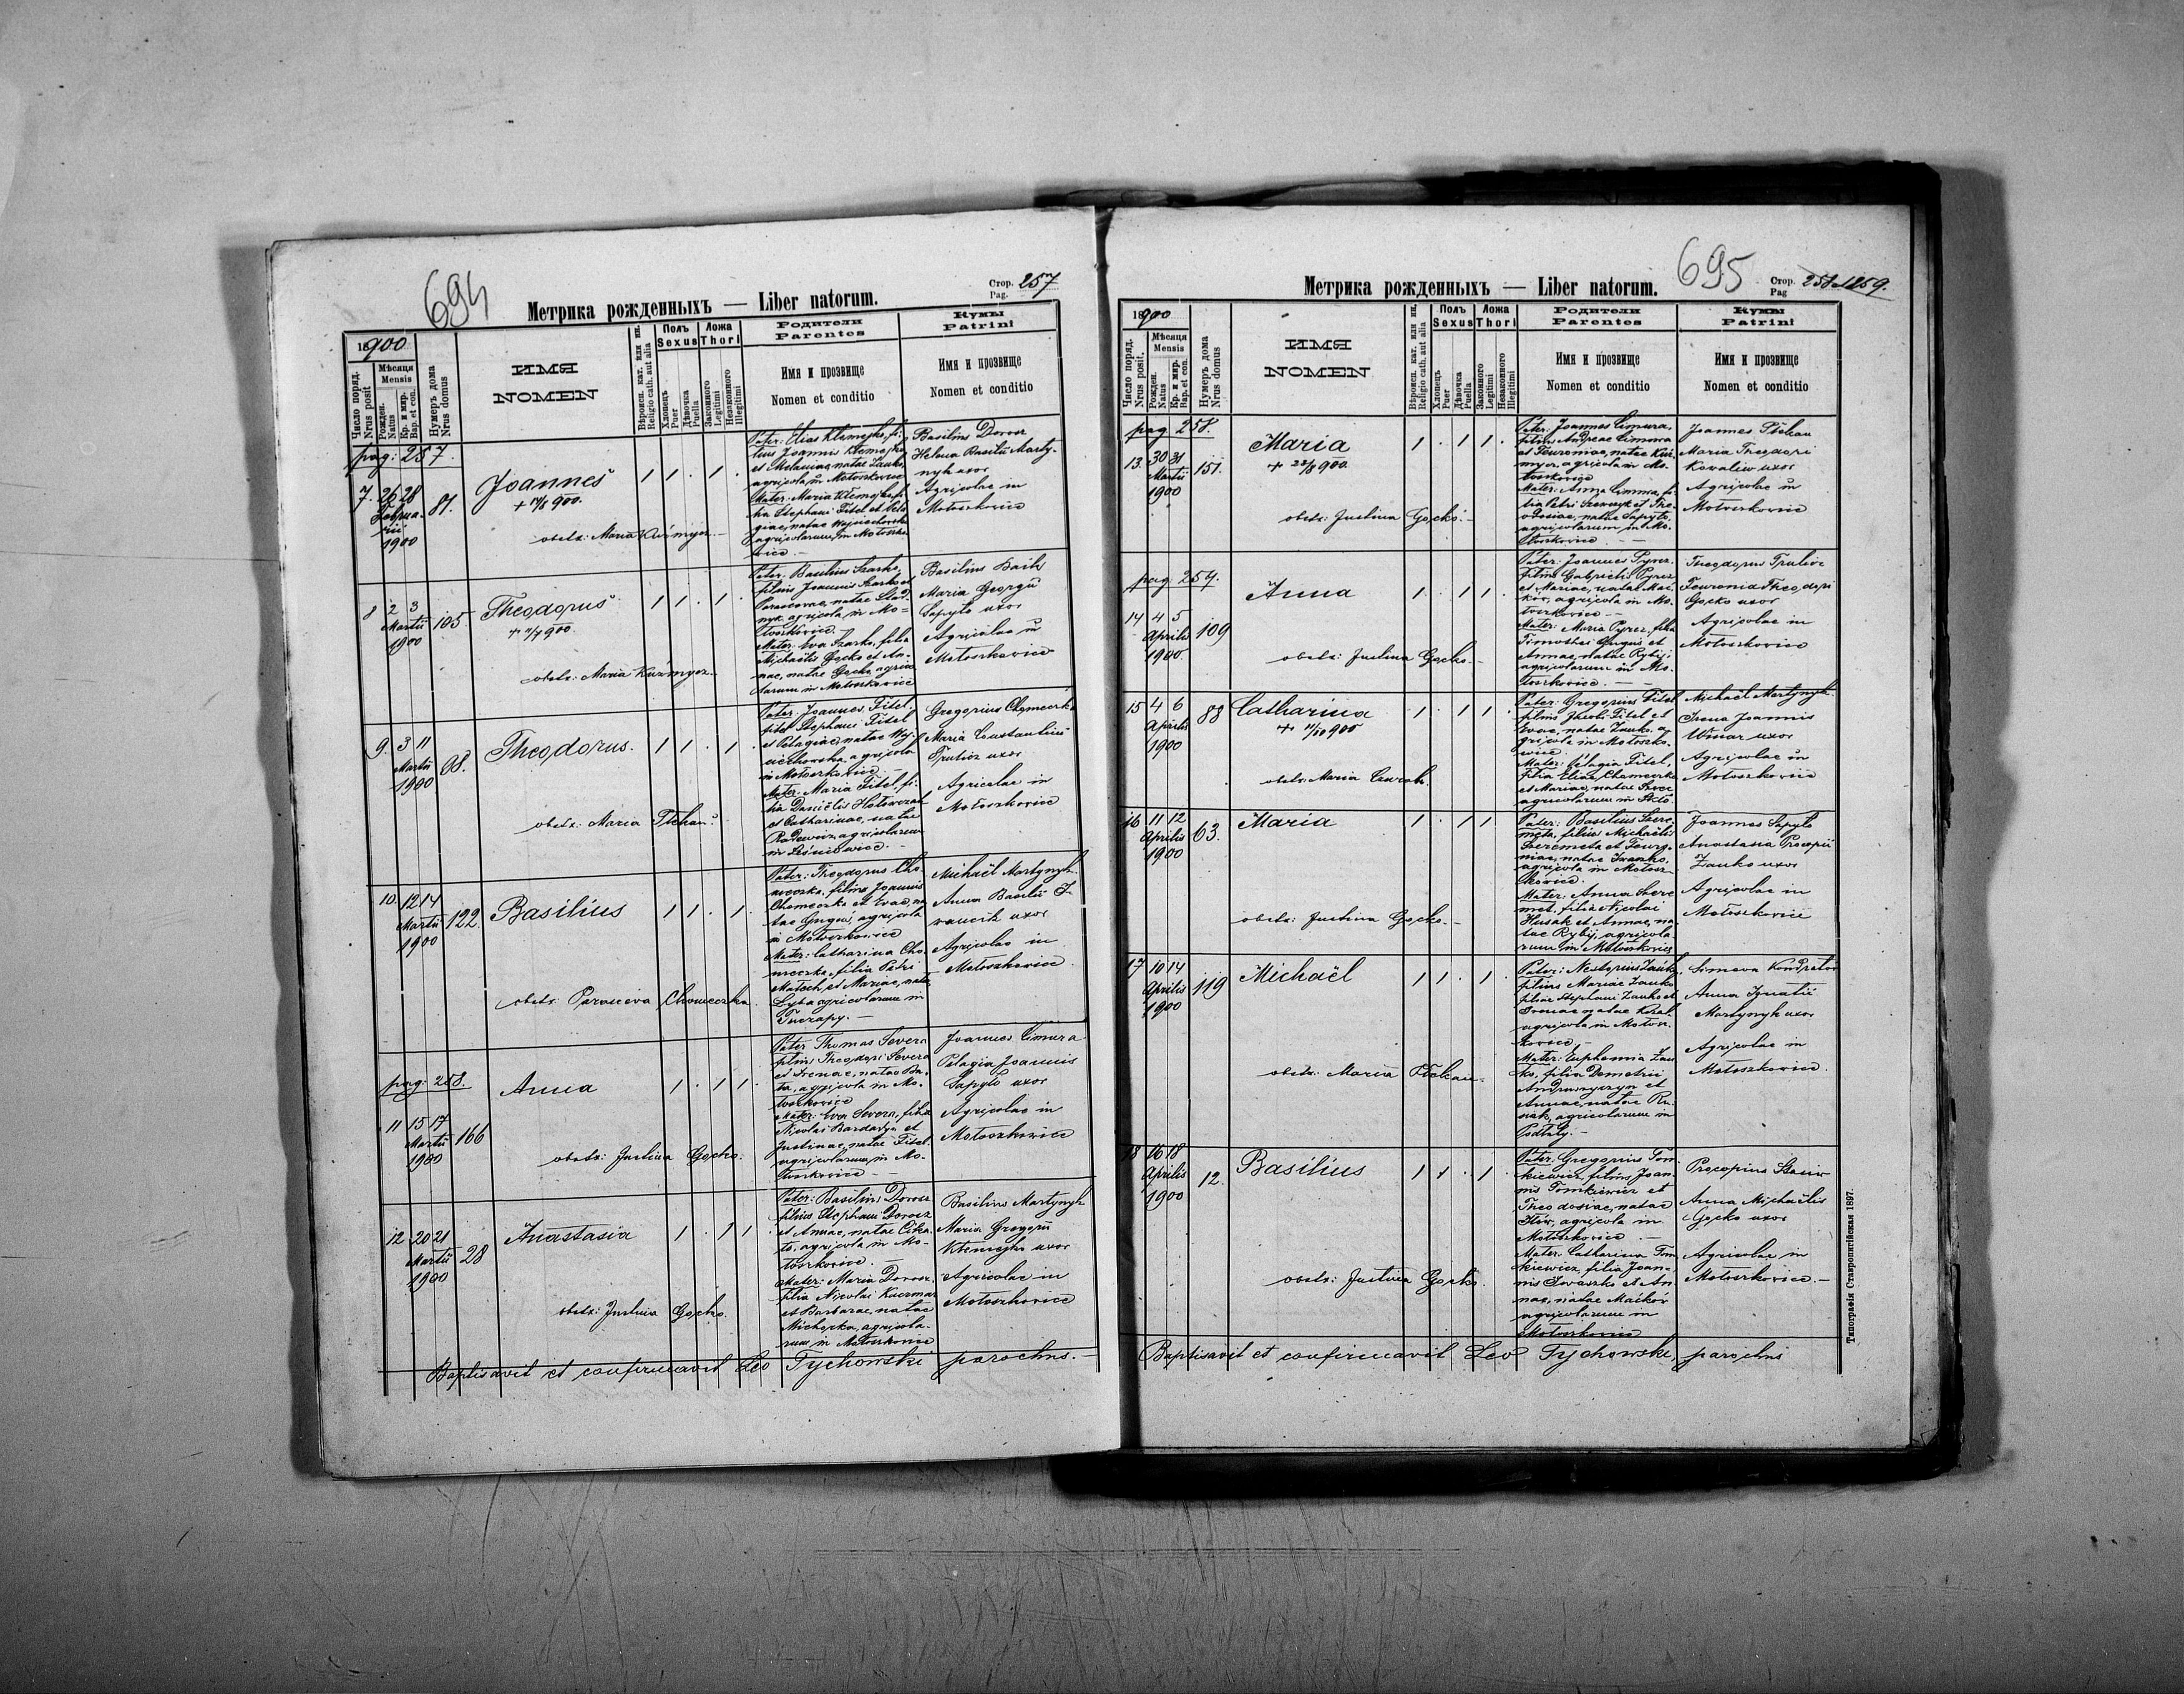 694
Метрика рожденныхъ — Liber natorum.
Стор. Pag. 257
1900
Число поряд. Nrus posit
Мѣсяця Mensis
Рожден. Natus
Кр. и мир. Bap. et con.
Нумеръ дома Nrus domus
ИМЯ
NOMEN
Вѣроисп. кат. или ин. Religio cath. aut alia
Полъ Sexus
Хлопець Puer
Дѣвочка Puella
Ложа Thori
Законного Legitimi
Незаконного Illegitimi
Родители
Parentes
Имя и прозвище
Nomen et conditio
Кумы
Patrini
Имя и прозвище
Nomen et conditio
pag: 257.
7. 26 28 Februarii 1900
81.
Joannes
obstx: Maria Kuźmycz.
1 1 . 1 .
Pater: Elias Klemejko, fi-
lius Joannis Klemejko
et Melaniae, natae Zauko,
agricola in Mołoszkowice
Mater: Maria Klemejko, fi-
lia Stephani Fitel et Pela-
giae, natae Wojciechowska
agricolarum in Mołoszko-
wice.
Basilius Dorosz
Helena Basilii Marty-
nyk uxor
Agricolae in
Mołoszkowice
8 2 3 Martii 1900
105
Theodorus
obstx: Maria Kuźmycz.
1 1 . 1 .
Pater: Basilius Szarko,
filius Joannis Szarko et
Parascevae, natae Stad
nyk, agricola in Mo=
łoszkowice.
Mater: Eva Szarko, filia
Michaelis Gocko et An-
nae, natae Gocko, agrico
larum in Mołoszkowice
Basilius Baik
Maria Georgii
Sapyło uxor
Agricolae in
Mołoszkowice
9. 3 11 Martii 1900
98.
Theodorus.
obstx: Maria Ptekan.
1 1 . 1 .
Pater: Joannes Fitel,
fitel Stephani Fitel
et Pelagiae, natae Woj-
ciechowska, agricola
in Mołoszkowice.
Mater: Maria Fitel, fi-
lia Daniëlis Hołowczak
et Catharinae, natae
Radewicz, agricolarum
in Leśniowice.
Gregorius Chomeczko
Maria Constantini
Trulicz uxor
Agricolae in
Mołoszkowice
10. 12 14 Martii 1900
122.
Basilius
obstx: Parasceva Chomeczka.
1 1 . 1 .
Pater: Theodorus Cho-
meczko, filius Joannis
Chomeczko et Evae, na
tae Gnguś, agricola
in Mołoszkowice
Mater: Catharina Cho-
meczko, filia Petri
Matoch et Mariae, natae
Lyba agricolarum in
Tuczapy.
Michaël Martynyk
Anna Basilii I-
wancik uxor
Agricolae in
Mołoszkowice
pag: 258.
11 15 17 Martii 1900
166
Anna
obstx: Justina Gocko.
1 . 1 1 .
Pater: Thomas Severa
filius Theodori Severa
et Irenae, natae Ba-
ta, agricola in Mo-
łoszkowice
Mater: Eva Severa, filia
Nicolai Bardaryn et
Justinae, natae Fitel,
agricolarum in Mo-
łoszkowice
Joannes Cimura
Pelagia Joannis
Sapyło uxor
Agricolae in
Mołoszkowice
12 20 21 Martii 1900
28
Anastasia
obstx: Justina Gocko.
1 . 1 1 .
Pater: Basilius Dorosz
filius Stephani Dorosz
et Annae, natae Cika-
ło, agricola in Mo-
łoszkowice.
Mater: Maria Dorosz,
filia Nicolai Kuczmar
et Barbarae, natae
Michocka, agricola-
rum in Mołoszkowice
Basilius Martynyk
Maria Gregorii
Klemejko uxor
Agricolae in
Mołoszkowice
Baptisavit et confirmavit Leo Tychowski parochus.
695
Метрика рожденныхъ — Liber natorum.
Стор. Pag 258 & 259.
1900
Число поряд. Nrus posit.
Мѣсяця Mensis
Рожден. Natus
Кр. и мир. Bap. et con.
Нумеръ дома Nrus domus
ИМЯ
NOMEN
Вѣроисп. кат. или ин. Religio cath. aut alia
Полъ Sexus
Хлопець Puer
Дѣвочка Puella
Ложа Thori
Законного Legitimi
Незаконного Illegitimi
Родители
Parentes
Имя и прозвище
Nomen et conditio
Кумы
Patrini
Имя и прозвище
Nomen et conditio
pag 258.
13. 30 31 Martii 1900
151.
Maria
obstx: Justina Gocko.
1 . 1 1 .
Pater: Joannes Cimura,
filius Andreae Cimura
et Feuroniae, natae Kuź
mycz, agricola in Mo-
łoszkowice
Mater: Anna Cimura, fi-
lia Petri Szewczyk et The-
odosiae, natae Sapyło,
agricolarum in Mo-
łoszkowice.
Joannes Ptekan
Maria Theodori
Kowaliw uxor
Agricolae in
Mołoszkowice
pag 259.
14 4 5 Aprilis 1900.
109
Anna
obstx: Justina Gocko.
1 . 1 1 .
Pater: Joannes Pyrez
filius Gabrielis Pyrez
et Mariae, natae Mać-
ków, agricola in Mo-
łoszkowice
Mater: Maria Pyrez, filia
Timothei Gnguś et
Annae, natae Rybij,
agricolarum in Mo-
łoszkowice.
Theodorus Trulicz
Feuronia Theodori
Gocko uxor
Agricolae in
Mołoszkowice
15 4 6 Aprilis 1900
88
Catharina
obstx: Maria
1 . 1 1 .
Pater: Gregorius Fitel
filius Jacobi Fitel et
Evae, natae Zauko, a-
gricola in Mołoszko-
wice.
Mater: Pelagia Fitel,
filia Eliae Chomeczko
et Mariae, natae Szwec
agricolarum in Szkło.
Michaël Martynyk
Irena Joannis
Winar uxor
Agricolae in
Mołoszkowice
16 11 12 Aprilis 1900
63.
Maria
obstx: Justina Gocko.
1 . 1 1
Pater: Basilius Szere-
meta, filius Michaelis
Szeremeta et Feuro-
niae, natae Iwanko,
agricola in Mołosz-
kowice.
Mater: Anna Szere
met, filia Nicolai
Husak et Annae, na-
tae Rybij, agricola-
rum in Mołoszkowice
Joannes Sapyło
Anastasia Procopii
Zauko uxor
Agricolae in
Mołoszkowice
17 10 14 Aprilis 1900
119
Michaël
obstx: Maria Ptekan.
1 1 . 1 .
Pater: Nestorius Zauko
filius Mariae Zauko
filiae Stephani Zauko et
Irenae natae Kozak
agricola in Mołosz-
kowice,
Mater: Euphemia Zau
ko, filia Demetrii
Andruszczyn et
Annae, natae Ru-
siak, agricolarum in
Podłuby.
Simeon Kondrator
Anna Ignatii
Martynyk uxor
Agricolae in
Mołoszkowice.
18 16 18 Aprilis 1900
12.
Basilius
obstx: Justina Gocko.
1 1 . 1 .
Pater: Gregorius Tom
kiewicz, filius Joan-
nis Tomkiewicz et
Theodosiae, natae
Ilów, agricola in
Mołoszkowice.
Mater: Catharina Tom
kiewicz, filia Joan-
nis Iwaszko et An-
nae, natae Maćków
agricolarum in
Mołoszkowice
Procopius Staniw
Anna Michaëlis
Gocko uxor
Agricolae in
Mołoszkowice.
Baptisavit et confirmavit Leo Tychowski, parochus
Типографія Ставропигійская 1897.